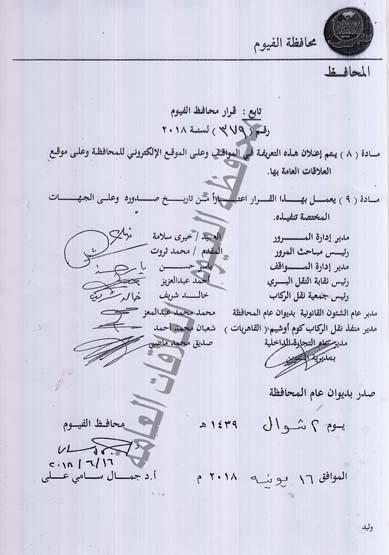 محافظة الفيوم
المحافظ
تابع : قرار محافظ الفيوم
رقم (٣٧٩) لسنة ٢٠١٨
مادة ( ٨ ) يتم إعلان هذه التعريفة في المواقف وعلى الموقع الإلكتروني للمحافظة وعلى موقع
العلاقات العامة بها.
مادة ( ٩ ) يعمل بهذا القرار اعتباراً من تاريخ صدوره وعلى الجهات
المختصة تنفيذه.
مدير إدارة المرور العميد / خيرى سلامة
رئيس مباحث المرور المقدم / محمد ثروت
مدير إدارة المواقف حسن
رئيس نقابة النقل البري أحمد عبدالعزيز
رئيس جمعية نقل الركاب خالد شريف
مدير عام الشئون القانونية بديوان عام المحافظة محمد محمد عبدالمعز
مدير منفذ نقل الركاب كوم أوشيم ( القاهريات ) شعبان محمد أحمد
مدير عام التجارة الداخلية صديق محمد ماضي
بمديرية التموين
صدر بديوان عام المحافظة
يوم ٢ شوال ١٤٣٩ هـ
محافظ الفيوم
٢٠١٨/٦/١٦
الموافق ١٦ يونيه ٢٠١٨ م
أ.د جمال سامي على
وليد
محافظة الفيوم العلاقات العامة